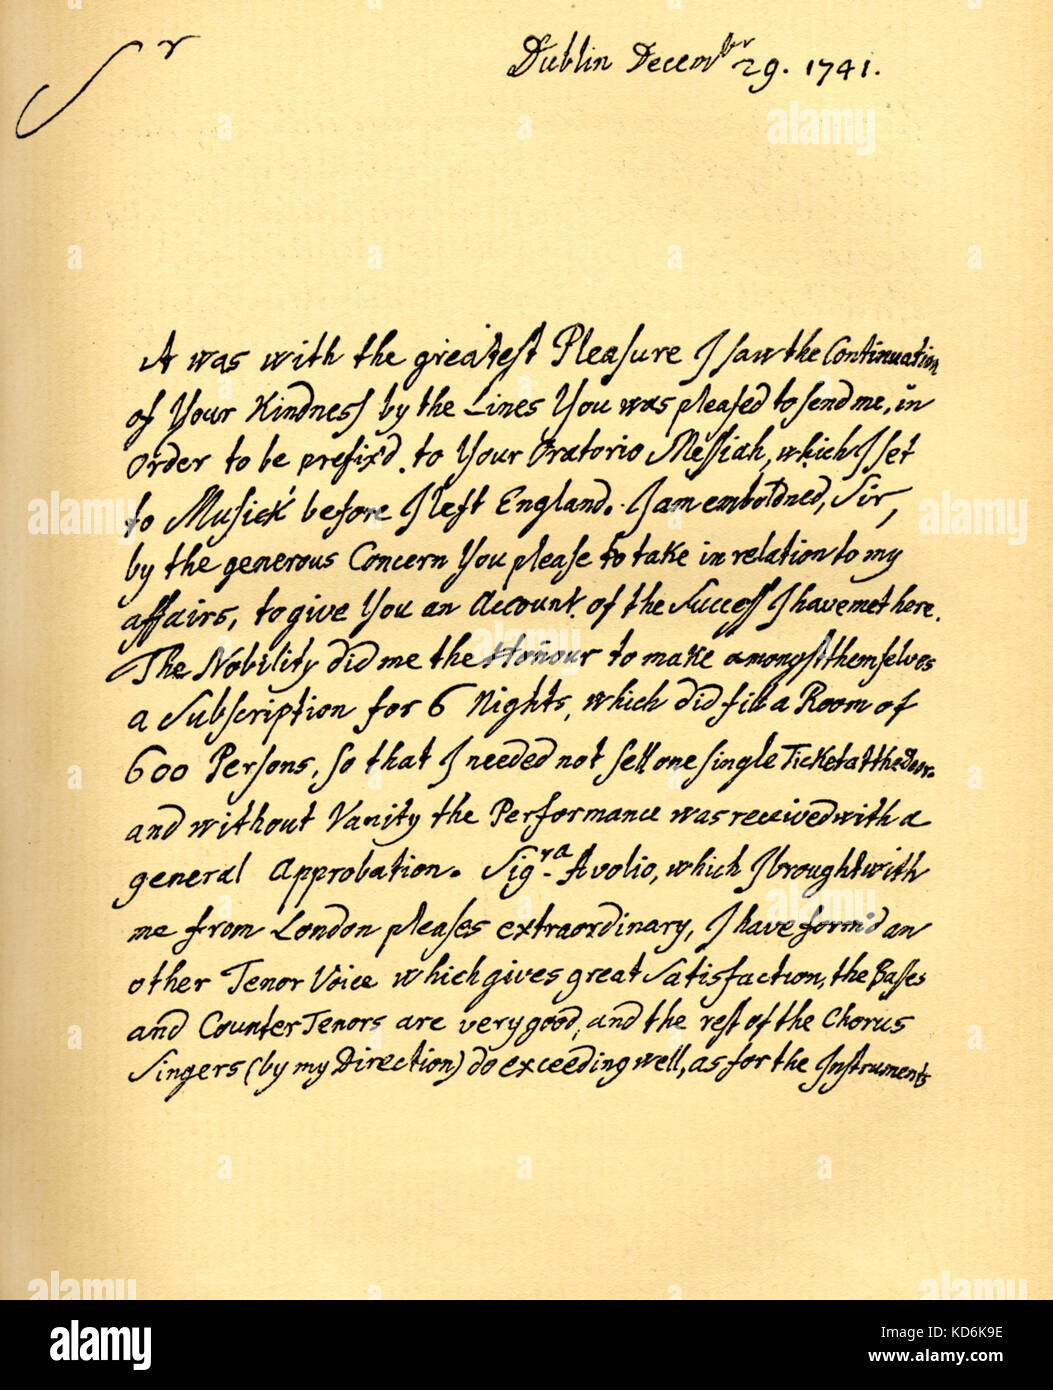 Sr
Dublin Decembr 29. 1741.
It was with the greatest Pleasure I saw the Continuation
of Your Kindness by the Lines You was pleased to send me, in
Order to be prefix'd to Your Oratorio Messiah, which I set
to Musick before I left England. I am emboldned, Sir,
by the generous Concern You please to take in relation to my
affairs, to give You an Account of the Success I have met here.
The Nobility did me the Honour to make amongst themselves
a Subscription for 6 Nights, which did fill a Room of
600 Persons, so that I needed not sell one single Ticket at the Door.
and without Vanity the Performance was received with a
general Approbation. Sigra Avolio, which I brought with
me from London pleases extraordinary, I have form'd an
other Tenor Voice which gives great Satisfaction, the Basses
and Counter Tenors are very good, and the rest of the Chorus
Singers (by my Direction) do exceeding well, as for the Instruments
alamy
Image ID: KD6K9E
www.alamy.com